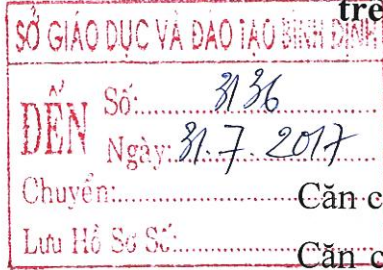 trê
SỞ GIÁO DỤC VÀ ĐÀO TẠO BÌNH ĐỊNH
ĐẾN
Số:........3136
Ngày:.31.7.2017
Chuyển:........
Căn c
Lưu Hồ Sơ Số:........
Căn c